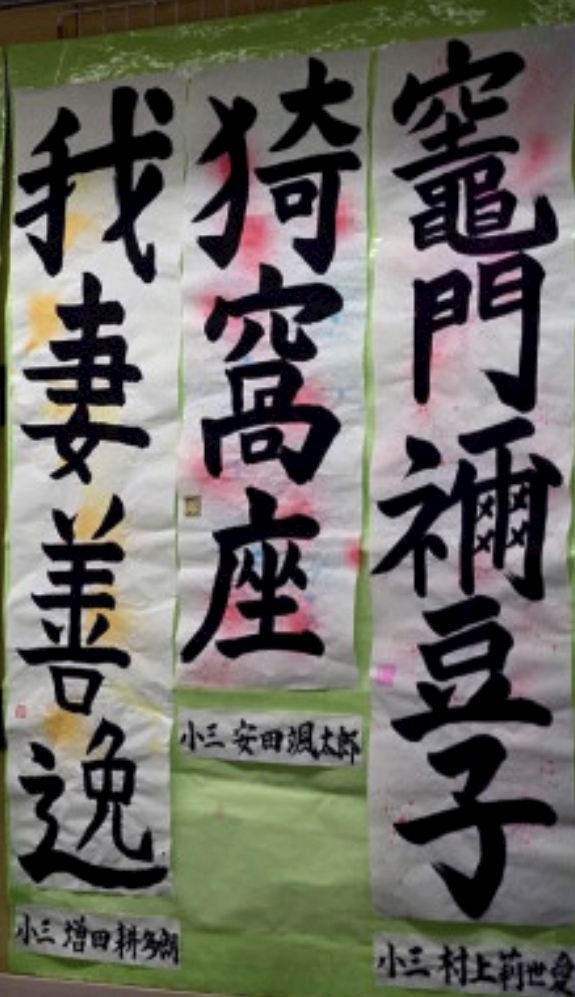 竈門禰豆子
小三 村上莉世愛
猗窩座
小三 安田颯太郎
我妻善逸
小三 増田耕多朗